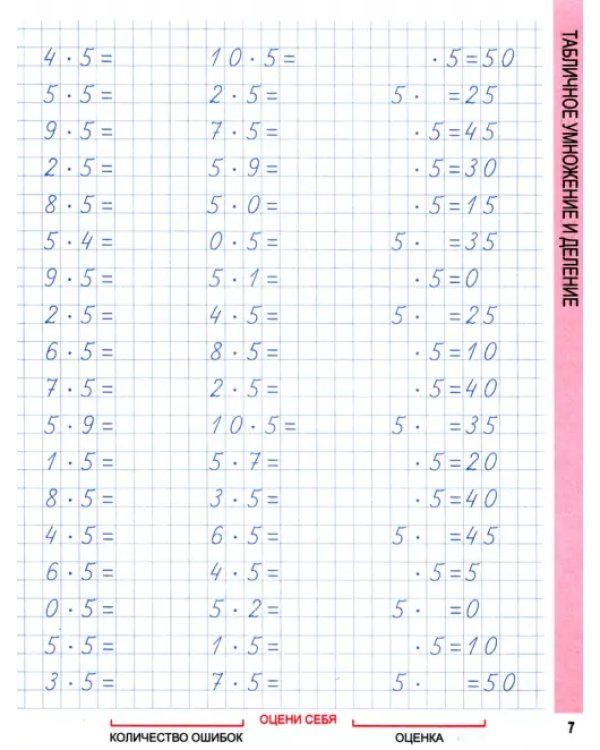 4 · 5 =
5 · 5 =
9 · 5 =
2 · 5 =
8 · 5 =
5 · 4 =
9 · 5 =
2 · 5 =
6 · 5 =
7 · 5 =
5 · 9 =
1 · 5 =
8 · 5 =
4 · 5 =
6 · 5 =
0 · 5 =
5 · 5 =
3 · 5 =
10 · 5 =
2 · 5 =
7 · 5 =
5 · 9 =
5 · 0 =
0 · 5 =
5 · 1 =
4 · 5 =
8 · 5 =
2 · 5 =
10 · 5 =
5 · 7 =
3 · 5 =
6 · 5 =
4 · 5 =
5 · 2 =
1 · 5 =
7 · 5 =
· 5 = 50
5 · = 25
· 5 = 45
· 5 = 30
· 5 = 15
5 · = 35
· 5 = 0
5 · = 25
· 5 = 10
· 5 = 40
5 · = 35
· 5 = 20
· 5 = 40
5 · = 45
· 5 = 5
5 · = 0
· 5 = 10
5 · = 50
ТАБЛИЧНОЕ УМНОЖЕНИЕ И ДЕЛЕНИЕ
ОЦЕНИ СЕБЯ
КОЛИЧЕСТВО ОШИБОК
ОЦЕНКА
7